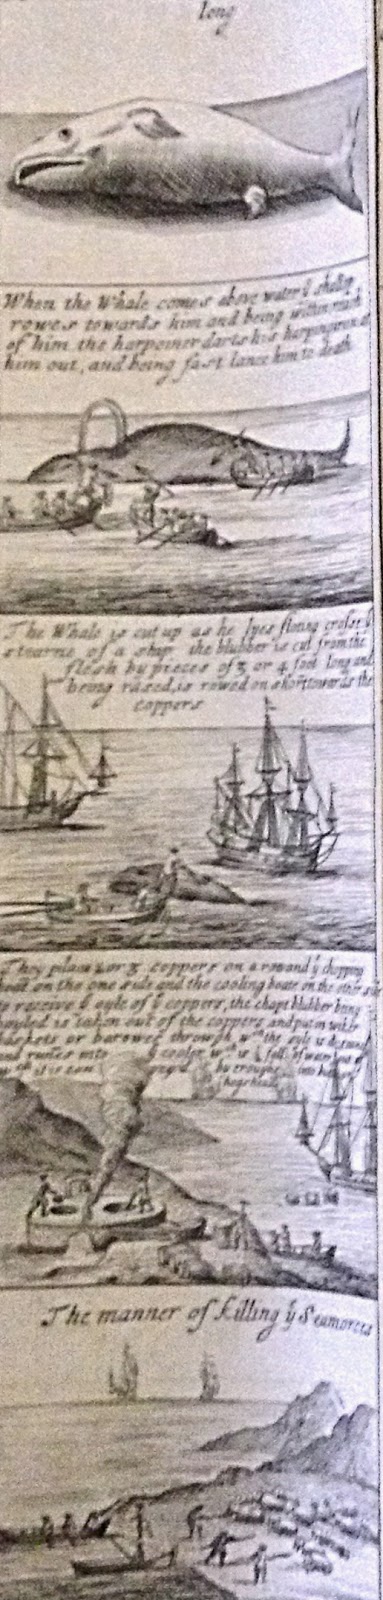 long
When the Whale comes above water ỹ shallop
rowes towards him and being within reach
of him the harpoiner darts his harpingiron at
him out, and being fast lance him to death
The Whale is cut up as he lyes floting crosse ỹ
stearne of a ship the blubber is cut from the
flesh by pieces of 3 or 4 foot long and
being rased, is rowed on shore towards the
coppers
They place 2 or 3 coppers on a row and ỹ chopping
boat on the one side and the cooling boate on the other side
to receive ỹ oyle of ỹ coppers, the chopt blubber being
boyled is taken out of the coppers and put in wicker
baskets or barowes through wᶜʰ the oyle is
and runes into ỹ cooler wᶜʰ is full of water
by troughs into
hogsheads
The manner of killing ỹ Seamorces